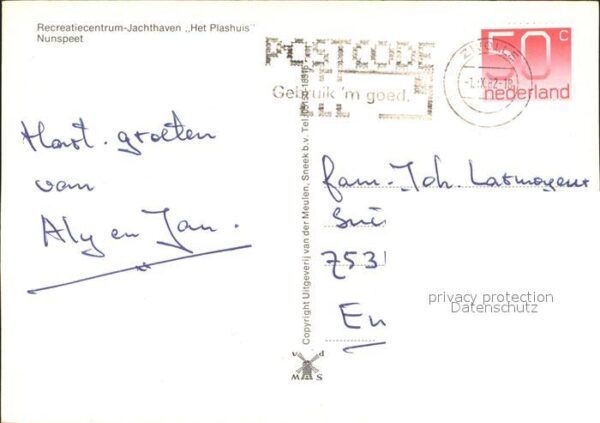 Recreatiecentrum-Jachthaven „Het Plashuis"
Nunspeet
POSTCODE
Gebruik 'm goed.
ZWOLLE
50 c
nederland
Hart. groeten
van
Aly en Jan.
fam. Joh.
7531
En
Copyright Uitgeverij van der Meulen, Sneek b.v. Tel.
privacy protection
Datenschutz